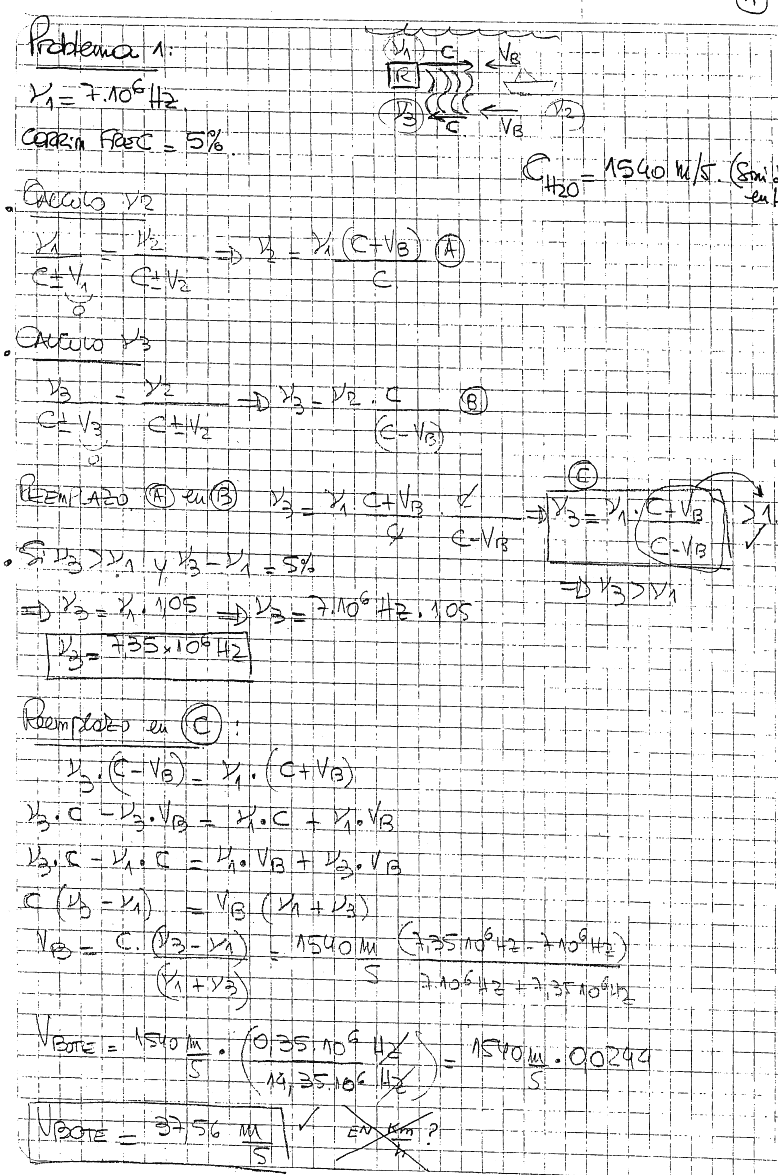 Problema 1:
ν1 = 7.10⁶ Hz.
CORRIM FREC = 5%.
ν1 C VB
R
ν3 C VB ν2
C H2O = 1540 m/s.
CALCULO ν2
ν1/(C±V1) = ν2/(C±V2) ⇒ ν2 = ν1 (C+VB)/C (A)
0
CALCULO ν3
ν3/(C±V3) = ν2/(C±V2) ⇒ ν3 = ν2 . C/(C-VB) (B)
0
REEMPLAZO (A) en (B) ν3 = ν1 . (C+VB)/C . C/(C-VB) ⇒ (C) ν3 = ν1 . (C+VB)/(C-VB) >1 ✓
⇒ ν3 > ν1
Si ν3 > ν1 y ν3 - ν1 = 5%
⇒ ν3 = ν1 . 1,05 ⇒ ν3 = 7.10⁶ Hz . 1,05
ν3 = 7,35 x 10⁶ Hz
Reemplazo en (C):
ν3 . (C-VB) = ν1 . (C+VB)
ν3 . C - ν3 . VB = ν1 . C + ν1 . VB
ν3 . C - ν1 . C = ν1 . VB + ν3 . VB
C (ν3 - ν1) = VB (ν1 + ν3)
VB = C . (ν3 - ν1)/(ν1 + ν3) = 1540 m/s (7,35 10⁶ Hz - 7 10⁶ Hz)/(7.10⁶ Hz + 7,35 10⁶ Hz)
VBOTE = 1540 m/s . (0,35.10⁶ Hz/14,35.10⁶ Hz) = 1540 m/s . 0,0244
VBOTE = 37,56 m/s ✓ EN Km/h ?